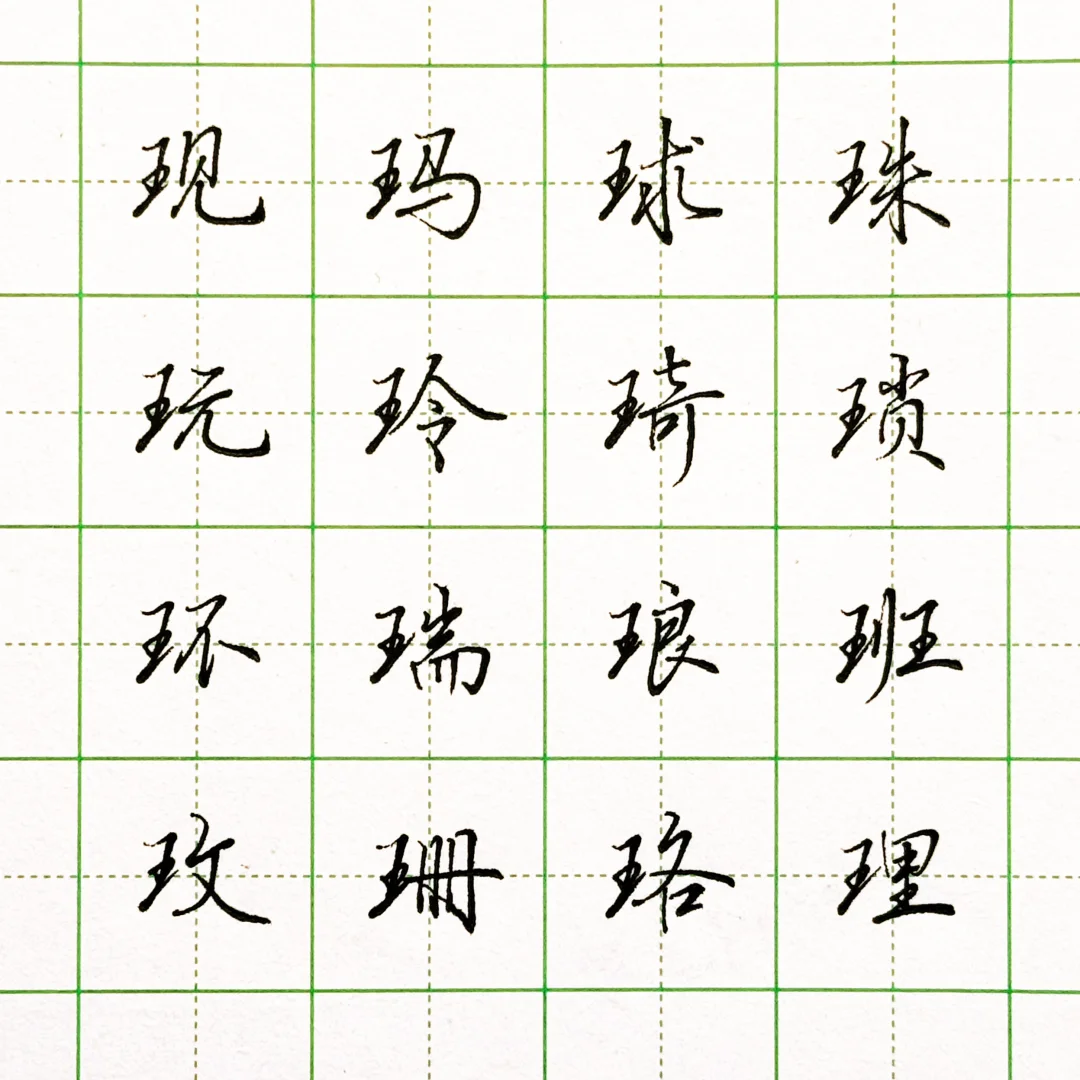 现玛球珠
玩玲琦琐
环瑞琅班
玫珊珞理